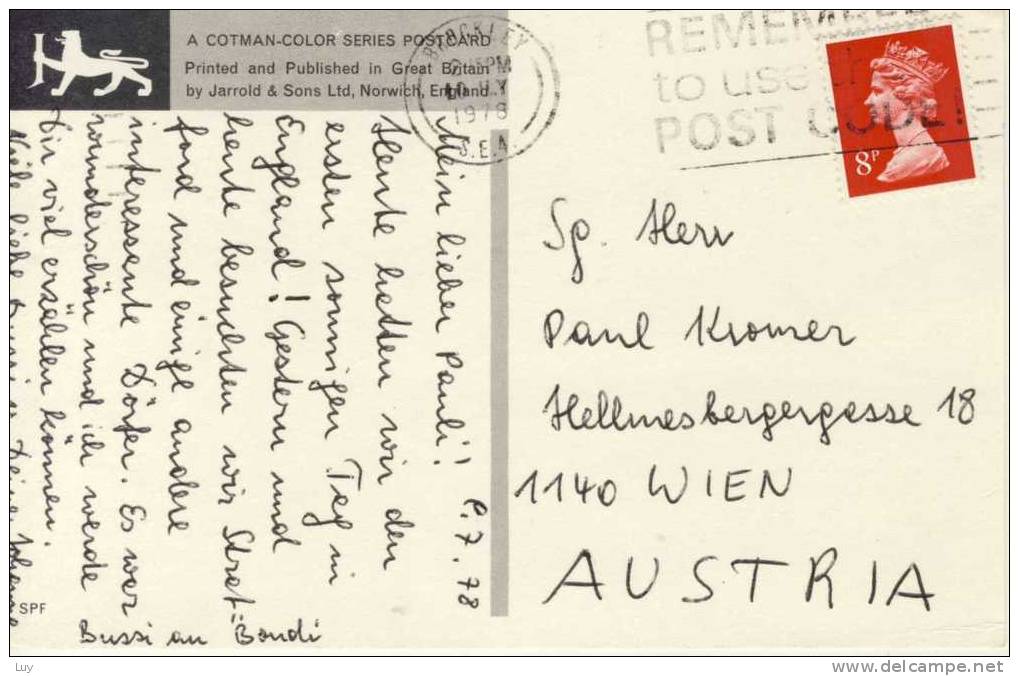 A COTMAN-COLOR SERIES POSTCARD
Printed and Published in Great Britain
by Jarrold & Sons Ltd, Norwich, England.
1978
S.E.
REMEMBER
to use the
POST CODE!
8P
P.7.78
Mein lieber Pauli!
Heute hatten wir den
ersten sonnigen Tag in
England! Gestern und
heute besuchten wir Strat-
ford und einige andere
interessante Dörfer. Es war
wunderschön und ich werde
Dir viel erzählen können.
Viele liebe Bussi Deine
Bussi an "Bondi
Sp. Herr
Paul Kromer
Hellmesbergergasse 18
1140 WIEN
AUSTRIA
SPF
Luy
www.delcampe.net